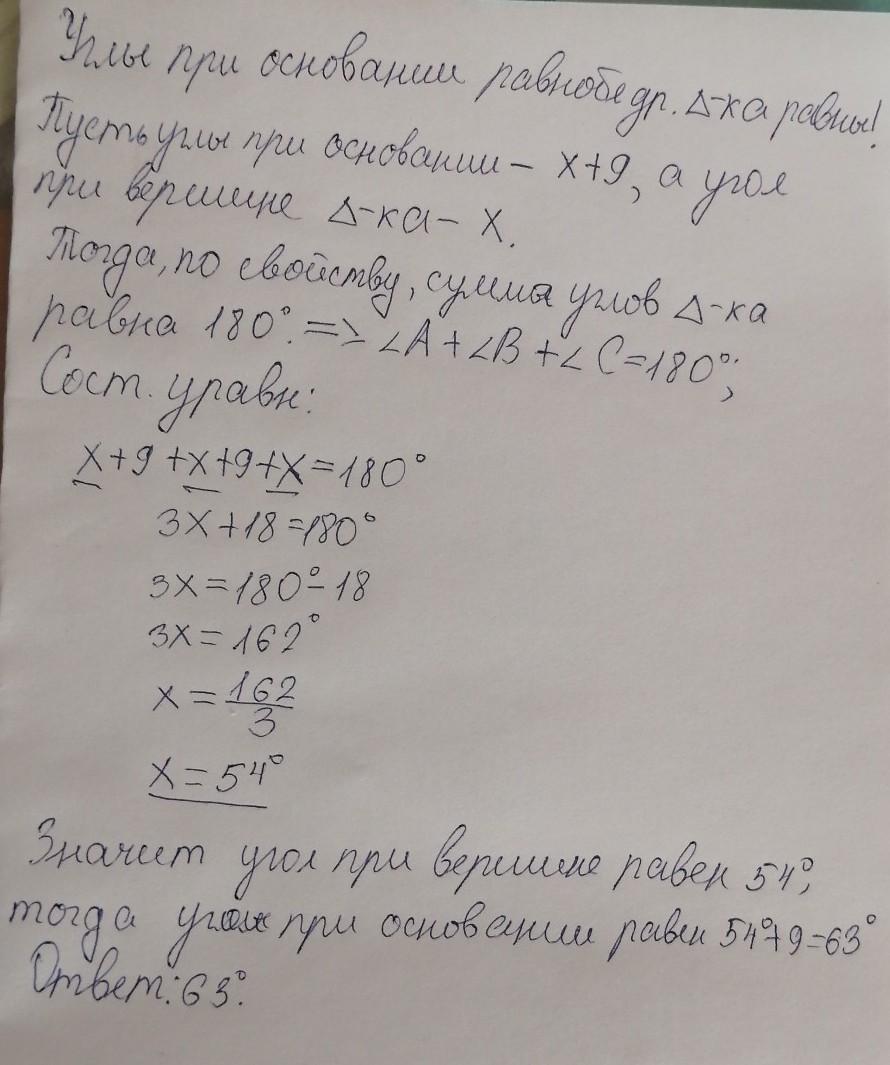 Углы при основании равнобедр. Δ-ка равны!
Пусть углы при основании – x+9, а угол
при вершине Δ-ка – x.
Тогда, по свойству, сумма углов Δ-ка
равна 180°. => ∠A+∠B+∠C=180°;
Сост. уравн:
x+9+x+9+x=180°
3x+18=180°
3x=180°-18
3x=162°
x=162/3
x=54°
Значит угол при вершине равен 54°,
тогда угол при основании равен 54°+9=63°
Ответ: 63°.